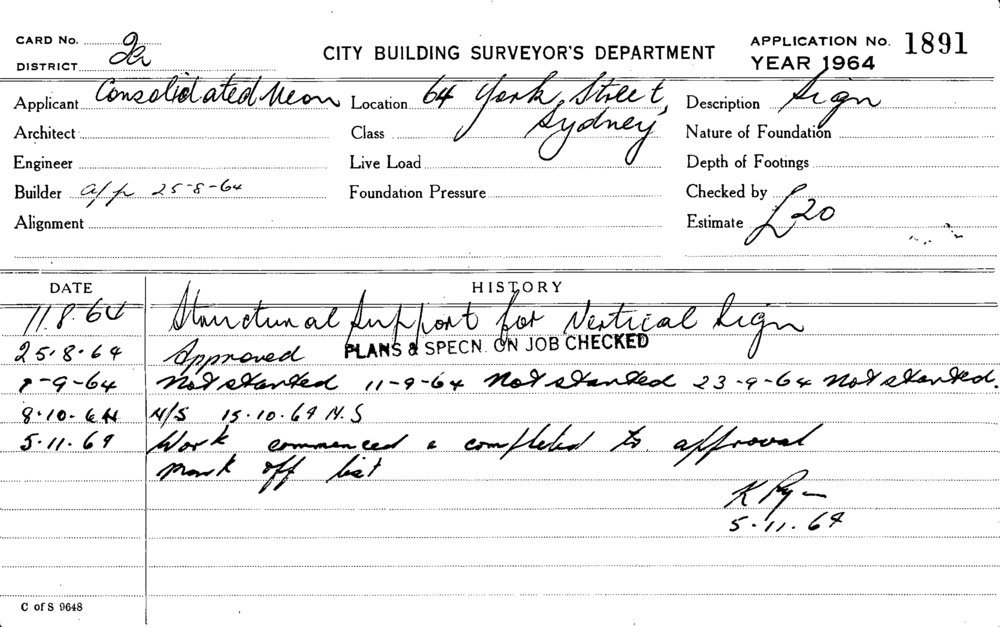 CARD No.
DISTRICT
CITY BUILDING SURVEYOR'S DEPARTMENT
APPLICATION No. 1891
YEAR 1964
Applicant Consolidated Neon Location 64 York Street, Sydney Description Sign
Architect Class Nature of Foundation
Engineer Live Load Depth of Footings
Builder a/p 25-8-64 Foundation Pressure Checked by
Alignment Estimate £20
DATE HISTORY
11.8.64 Structural Support for Vertical Sign
25.8.64 Approved PLANS & SPECN. ON JOB CHECKED
-9-64 Not started 11-9-64 Not started 23-9-64 Not started.
8.10.64 N/S 15.10.64 N.S
5.11.64 Work commenced & completed to approval
mark off list
K
5.11.64
C of S 9648